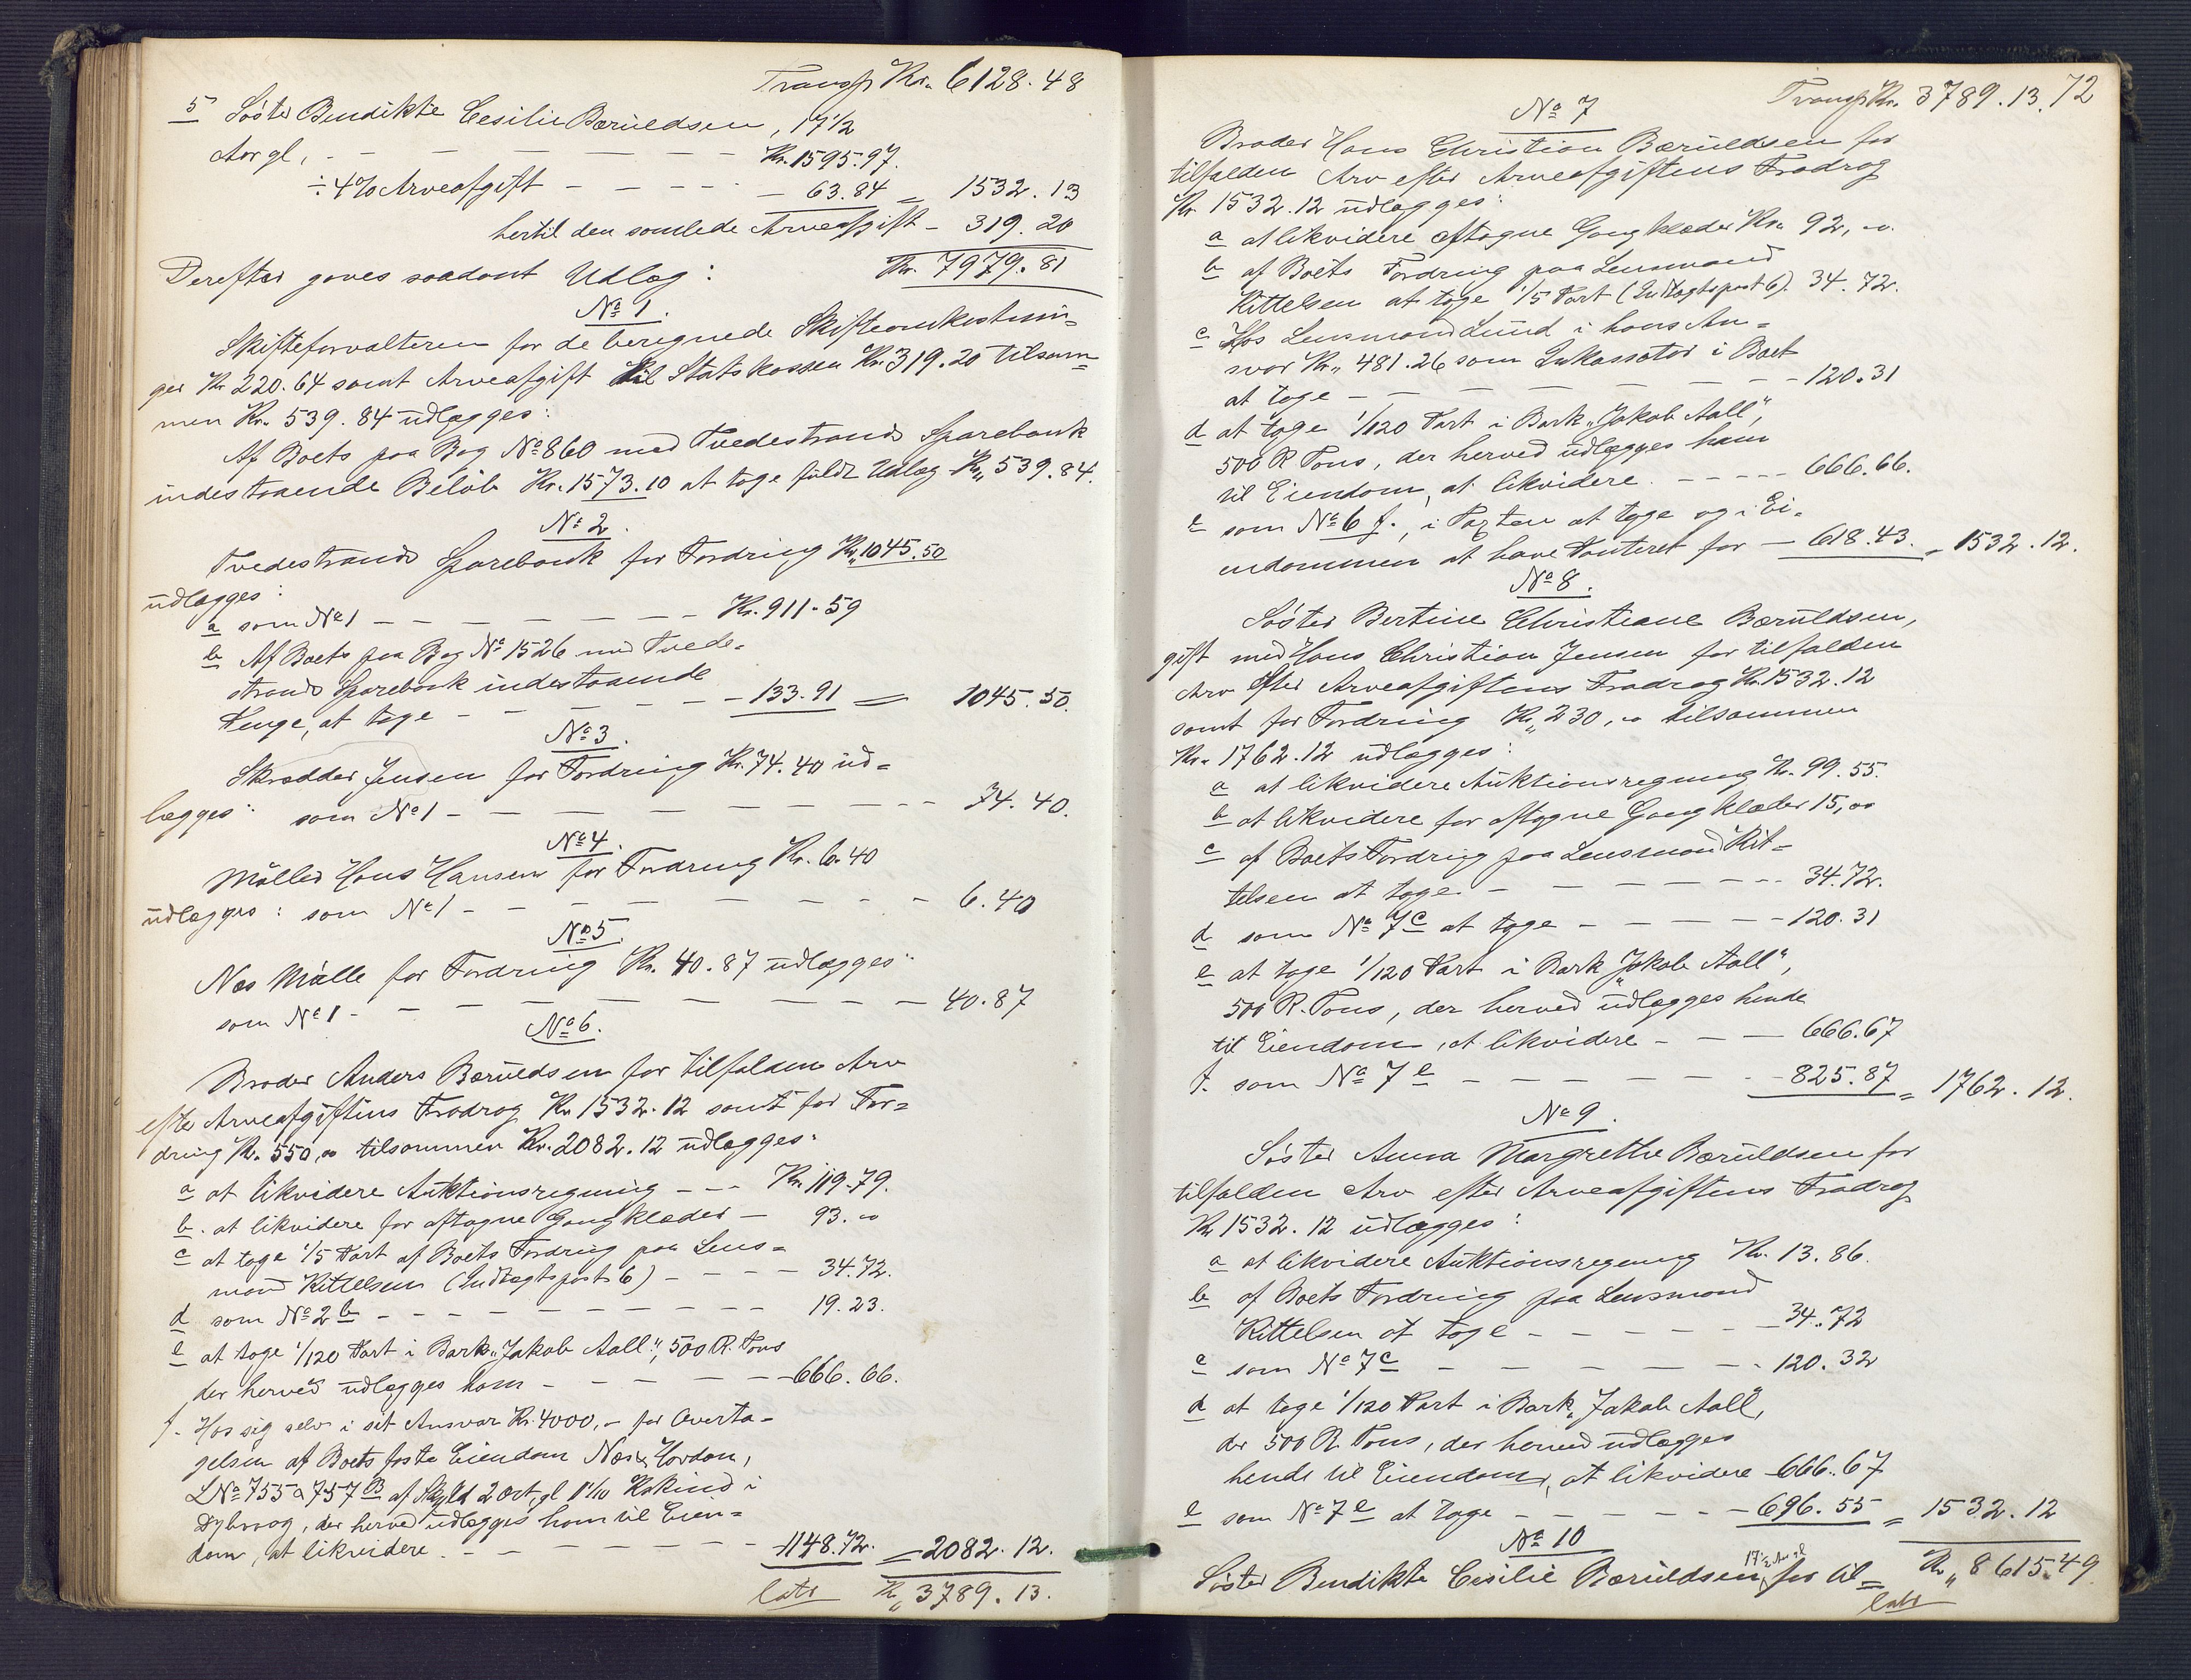 Transp. Kr. 6128.48
5 Søster Bendikte Cesilie Børuldsen, 17 1/2
Aar gl, - - - - - Kr. 1595.97.
÷ 4% Arveafgift - - - - - 63.84 = 1532.13
hertil den samlede Arveafgift - 319.20
Kr. 7979.81
Derefter gaves saadant Udlæg:
No 1.
Skifteforvalteren for de beregnede Skifteomkostnin=
ger Kr 220.64 samt Arveafgift til Statskassen Kr. 319.20 tilsam=
men Kr. 539.84 udlægges:
Af Boets paa Bog No 860 med Tvedestrands Sparebank
indestaaende Beløb Kr. 1573.10 at tage fuldt Udlæg Kr. 539.84.
No 2.
Tvedestrands Sparebank for Fordring Kr. 1045.50
udlægges:
a som No 1 - - - - - Kr. 911.59
b Af Boets paa Bog No 1526 med Tvede=
strands Sparebank indestaaende
Penge, at tage - - - - - 133.91 = 1045.50.
No 3.
Skrædder Jensen for Fordring Kr. 74.40 ud=
lægges: som No 1 - - - - - 74.40.
No 4.
Møller Hans Hansen for Fordring Kr. 6.40
udlægges: som No 1 - - - - - 6.40
No 5.
Næs Mølle for Fordring Kr. 40.87 udlægges:
som No 1 - - - - - 40.87
No 6.
Broder Anders Børuldsen for tilfalden Arv
efter Arveafgiftens Fradrag Kr 1532.12 samt for For=
dring Kr. 550,00 tilsammen Kr. 2082.12 udlægges:
a at likvidere Auktionsregning - - - Kr. 119.79.
b. at likvidere for aftagne Gangklæder - 93.00
c at tage 1/5 Part af Boets Fordring paa Lens=
mand Kittelsen (Indtægtspost 6) - - - - 34.72.
d som No 2 b - - - - - 19.23.
e at tage 1/120 Part i Bark "Jakob Aall", 500 R. Tons
der herved udlægges ham - - - - - 666.66.
f. Hos sig selv i sit Ansvar Kr. 4000,- for Overta=
gelsen af Boets faste Eiendom Næs, Hordom,
LNo 755 a 757 B af Skyld 2 Ort, gl 1 1/10 Kskind i
Dybvaag, der herved udlægges ham til Eien=
dom, at likvidere. - - - - - 1148.72. = 2082.12.
lats Kr. 3789.13.
Transp Kr. 3789.13. 72
No 7
Broder Hans Christian Børuldsen for
tilfalden Arv efter Arveafgiftens Fradrag
Kr 1532.12 udlægges:
a at likvidere aftagne Gangklæder Kr. 92,00.
b af Boets Fordring paa Lensmand
Kittelsen at tage 1/5 Part (Indtægtspost 6). 34.72.
c Hos Lensmand Lund i hans An=
svar Kr. 481.26 som Inkassator i Boet
at tage - - - - - 120.31
d at tage 1/120 Part i Bark "Jakob Aall",
500 R Tons, der herved udlægges ham
til Eiendom, at likvidere. - - - - - 666.66.
e som No 6 f., i Taxten at tage og i Ei=
endommen at have Panteret for - 618.43. = 1532.12.
No 8.
Søster Bertine Christiane Børuldsen,
gift med Hans Christian Jensen for tilfalden
Arv efter Arveafgiftens Fradrag Kr. 1532.12
samt for Fordring Kr. 230,00 tilsammen
Kr. 1762.12 udlægges:
a at likvidere Auktionsregning Kr. 99.55.
b at likvidere for aftagne Gangklæder 15,00
c af Boets Fordring paa Lensmand Kit=
telsen at tage - - - - - 34.72.
d som No 7 c at tage - - - - - 120.31
e at tage 1/120 Part i Bark "Jakob Aall",
500 R. Tons, der herved udlægges hende
til Eiendom, at likvidere - - - 666.67
f. som No 7 e - - - - - 825.87 = 1762.12.
No 9.
Søster Anna Margrethe Børuldsen for
tilfalden Arv efter Arveafgiftens Fradrag
Kr 1532.12 udlægges:
a at likvidere Auktionsregning Kr. 13.86.
b af Boets Fordring paa Lensmand
Kittelsen at tage - - - - - 34.72
c som No 7 c - - - - - 120.32
d at tage 1/120 Part i Bark "Jakob Aall",
der 500 R. Tons, der herved udlægges
hende til Eiendom, at likvidere 666.67
e som No 7 e at tage - - - - - 696.55 = 1532.12
No 10 Kr. 8615.49
Søster Bendikte Cesilie Børuldsen, 17 1/2 Aar gl for til=
lats